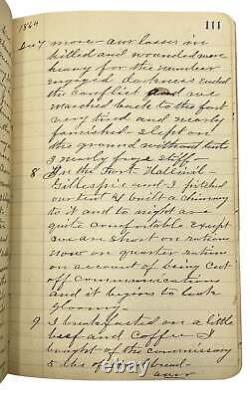 1864
111
Dec 7 more - our losses in
killed and wounded more
heavy for the number
engaged darkness ended
the conflict and we
marched back to the fort
very tired and nearly
famished slept on
the ground without tents
I nearly froze stiff-
8 In the Fort. Hallinil-
Gillespie and I pitched
our tent & built a chimney
to it and to night are
quite comfortable except
we are short on rations
now on quarter rations
on account of being cut
off communications
and it begins to look
gloomy
9 I breakfasted on a little
beef and coffee I
bought of the commissary
& the of bread
over